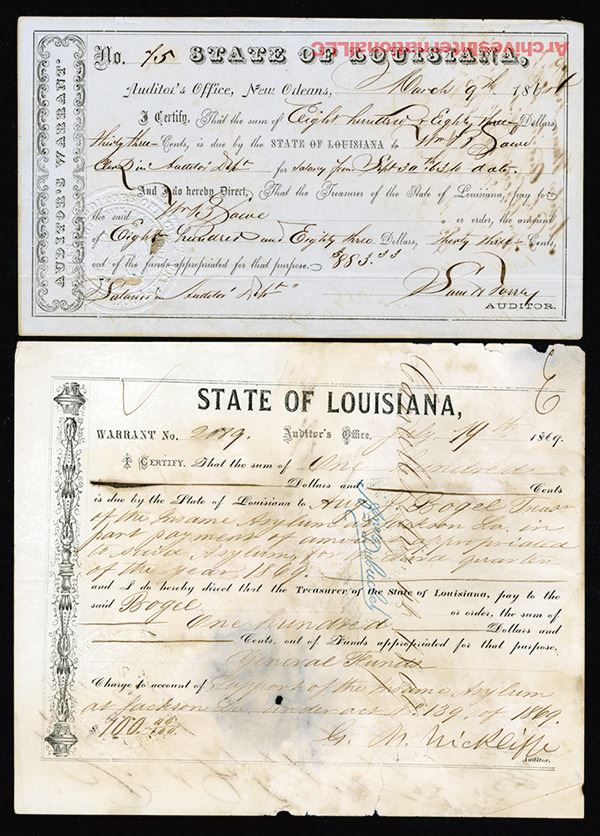 ArchivesInternationalLLC
No. 75 STATE OF LOUISIANA,
Auditor's Office, New Orleans, March 9th 186
I Certify, That the sum of Eight hundred & Eighty three Dollars,
thirty three Cents, is due by the STATE OF LOUISIANA to Wm
Clerk in Auditor's Dept for salary from Sept 30th to date.
And I do hereby Direct, That the Treasurer of the State of Louisiana, pay to
the said Wm or order, the amount
of Eight hundred and Eighty three Dollars, thirty three Cents,
out of the funds appropriated for that purpose. $883.33
Salaries in Auditor's Dept
AUDITOR.
AUDITOR'S WARRANT.
STATE OF LOUISIANA,
WARRANT No. 2019. Auditor's Office, July 19th 1869.
I CERTIFY, That the sum of One hundred
Dollars and Cents
is due by the State of Louisiana to Bogel
of the Insane Asylum Jackson La. in
part payment of appropriated
to said Asylum, for third quarter
of the year 1869.
and I do hereby direct that the Treasurer of the State of Louisiana, pay to the
said Bogel or order, the sum of
One hundred Dollars and
Cents, out of Funds appropriated for that purpose.
General Funds
Charge to account of Support of the Insane Asylum
at Jackson La. under act No. 139. of 1869.
$100.00/100
G. M. Wickliffe
Auditor.